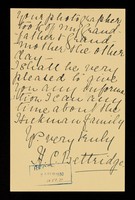 Your photographer
took of my Grand
Father & Grand
mother the other
day –
I shall be very
pleased to give
you any inform
ation I can any
time about the
Hickman Family
Yr very truly
H. C. Bettridge